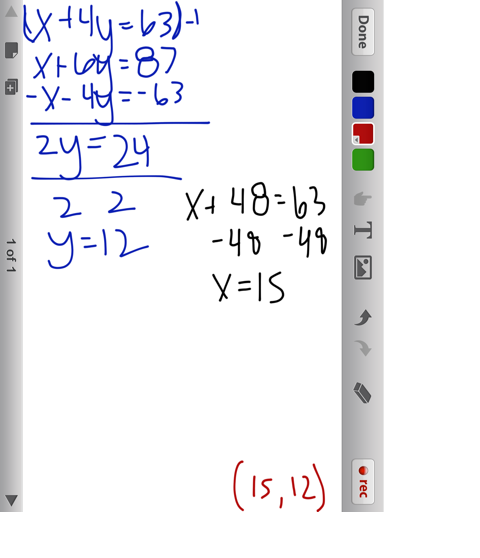 (x+4y=63)-1
x+6y=87
-x-4y=-63
2y=24
2 2
y=12
x+48=63
-48 -48
x=15
(15,12)
Done
T
rec
1 of 1